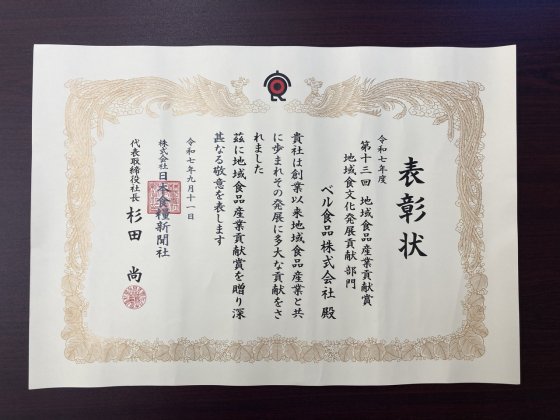 表彰状
令和七年度
第十三回 地域食品産業貢献賞
地域食文化発展貢献 部門
ベル食品 株式会社 殿
貴社は創業以来地域食品産業と共
に歩まれその発展に多大な貢献をさ
れました
茲に地域食品産業貢献賞を贈り深
甚なる敬意を表します
令和七年九月十一日
株式会社 日本食糧新聞社
代表取締役社長 杉田 尚